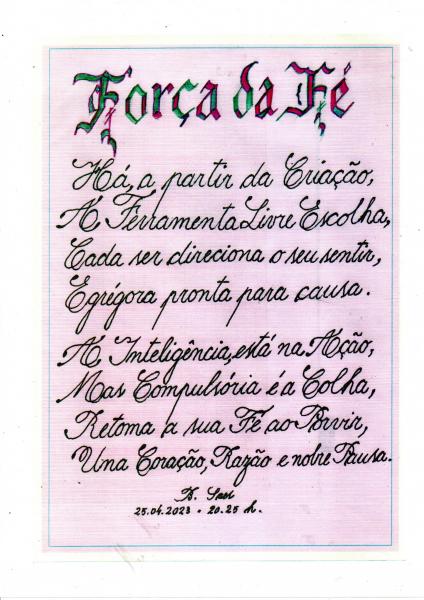 Força da Fé
Há, a partir da Criação,
A Ferramenta Livre Escolha,
Cada ser direciona o seu sentir,
Egrégora pronta para causa.
A Inteligência, está na Ação,
Mas Compulsória é a Colha,
Retoma a sua Fé ao Porvir,
Una Coração, Razão e nobre Pausa.
25.04.2023 - 20.25 h.